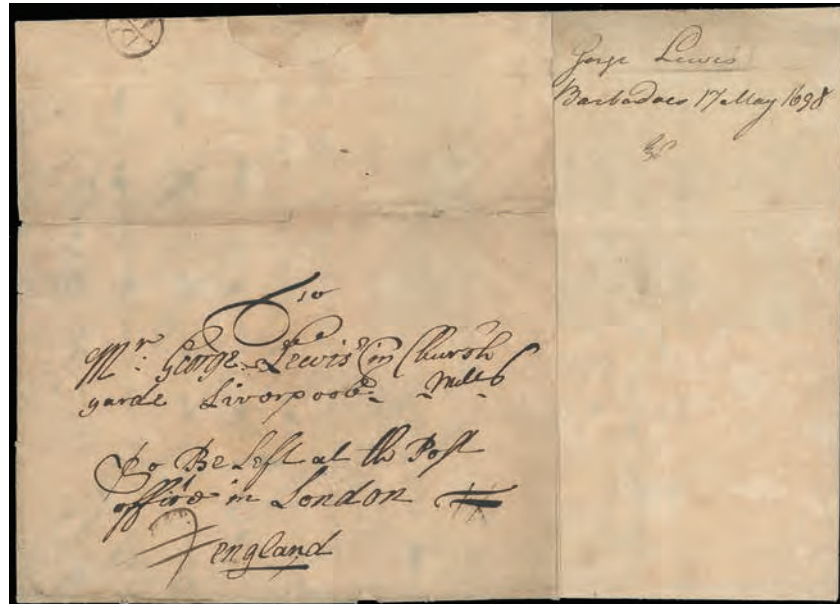 George Lewis
Barbadoes 17 May 1698
To
Mr: George Lewis in Church
yarde Liverpoole
To Be Left at the Post
office in London
england